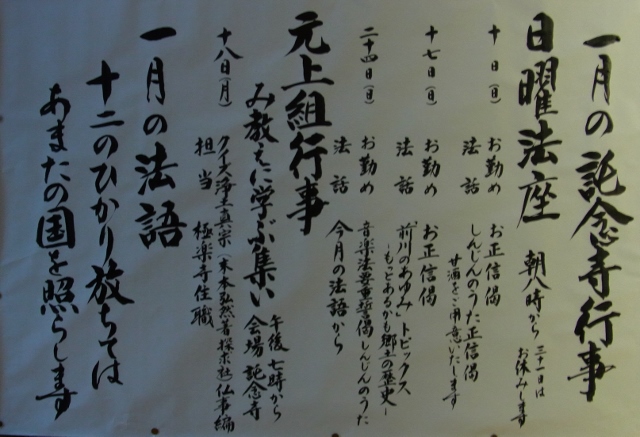 一月の託念寺行事
日曜法座 朝八時から 三十一日はお休みします
十日(日) お勤め お正信偈
法話 しんじんのうた正信偈
甘酒をご用意いたします
十七日(日) お勤め お正信偈
法話 「前川のあゆみ」トピックス
―もっとあるかも郷土の歴史―
二十四日(日) お勤め 音楽法要重誓偈しんじんのうた
法話 今月の法語から
元上組行事
み教えに学ぶ集い 午後七時から 会場託念寺
十八日(月) クイズ浄土真宗(末本弘然著探求社)仏事編
担当 極楽寺住職
一月の法語
十二のひかり放ちては
あまたの国を照らします